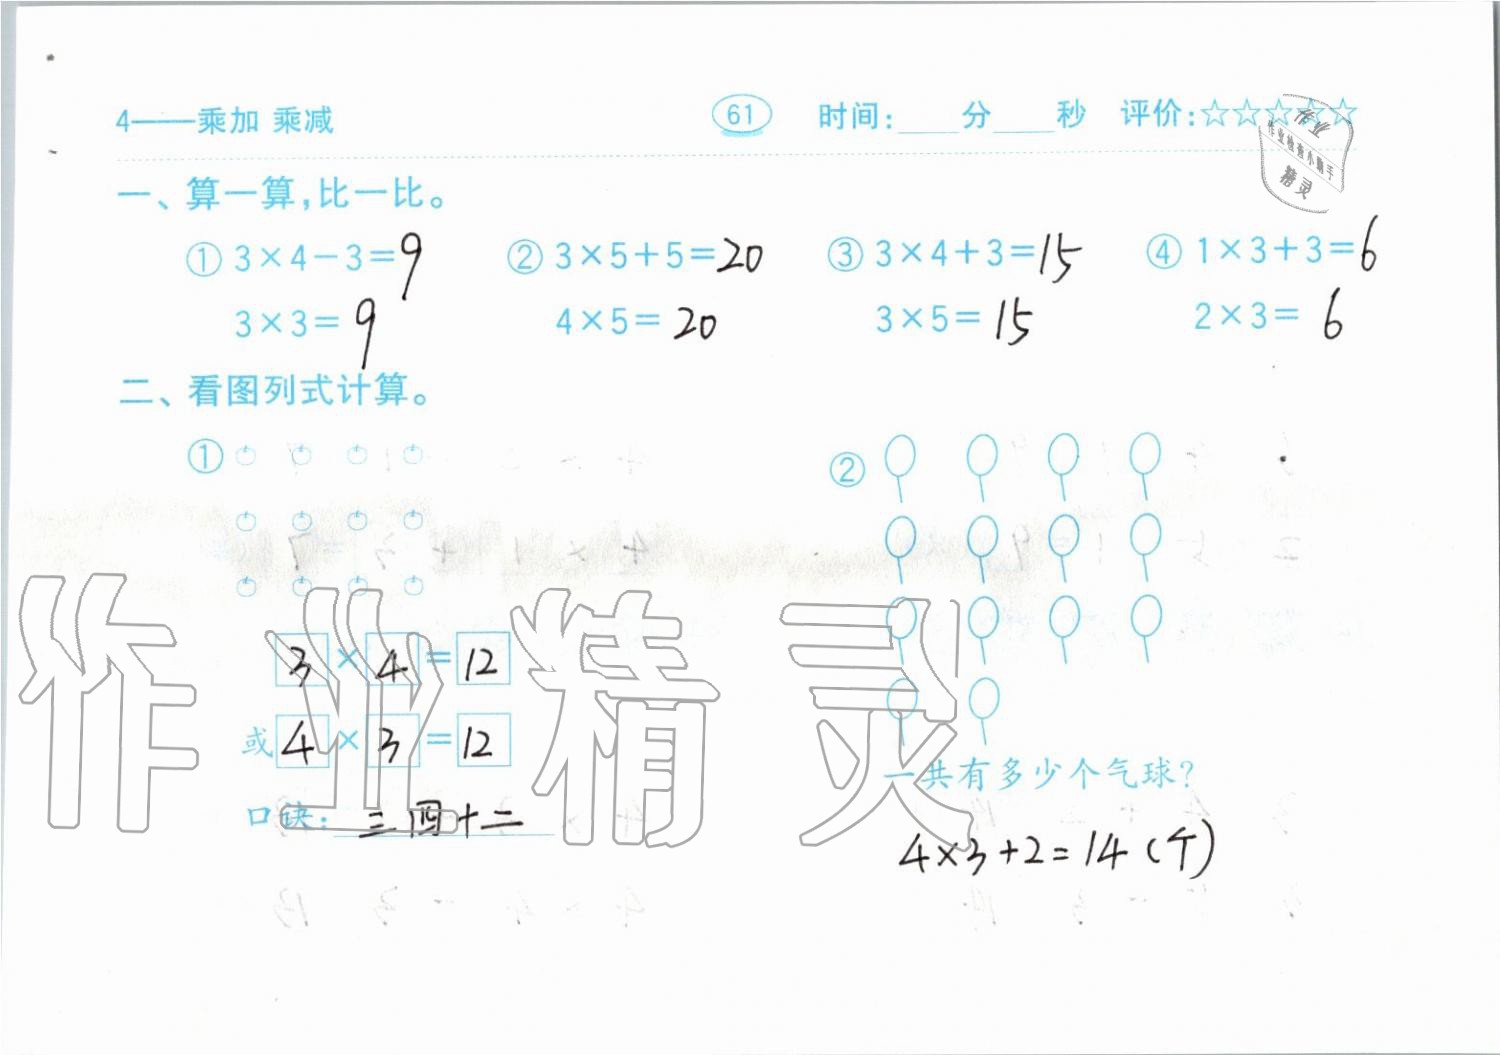 4——乘加 乘减 61 时间:____分____秒 评价:☆☆☆☆☆
作业检查小助手
精灵
一、算一算,比一比。
① 3×4-3=9 ② 3×5+5=20 ③ 3×4+3=15 ④ 1×3+3=6
3×3=9 4×5=20 3×5=15 2×3=6
二、看图列式计算。
① ②
3×4=12
或4×3=12
口诀:三四十二
一共有多少个气球?
4×3+2=14(个)
作业精灵